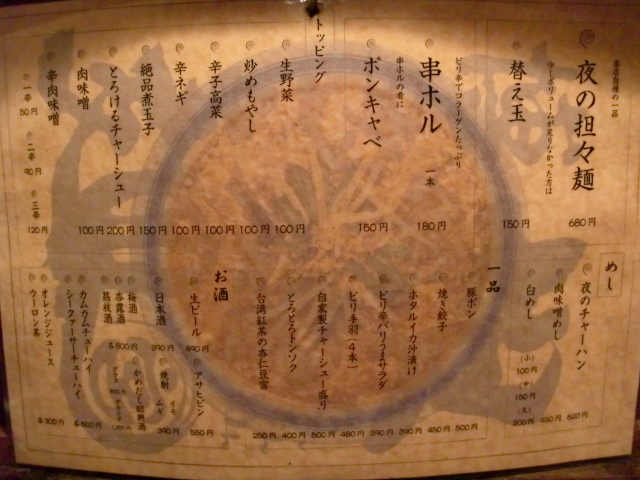 夜の担々麺 680円
替え玉 150円
ピリ辛でコラーゲンたっぷり
串ホル 一本 180円
串ホルの肴に
ポンキャベ 150円
トッピング
生野菜 100円
炒めもやし 100円
辛子高菜 100円
辛ネギ 100円
絶品煮玉子 150円
とろけるチャーシュー 200円
肉味噌 100円
辛肉味噌
一辛 50円
二辛 90円
三辛 120円
めし
夜のチャーハン 620円
肉味噌めし 450円
白めし
(小) 100円
(中) 150円
(大) 200円
一品
豚ポン 500円
焼き餃子 450円
ホタルイカ沖漬け 390円
ピリ辛バリうまサラダ 390円
ピリ手羽(4本) 480円
自家製チャーシュー盛り 500円
とろとろトンソク 400円
台湾紅茶の杏仁豆腐 250円
お酒
生ビール 490円
アサヒビン 550円
日本酒 390円
焼酎 イモ ムギ 390円
梅酒
杏露酒
茘枝酒
各500円
かめだし紹興酒
グラス 500円
カムカムチューハイ
シークァーサーチューハイ
各500円
オレンジジュース
ウーロン茶
各300円